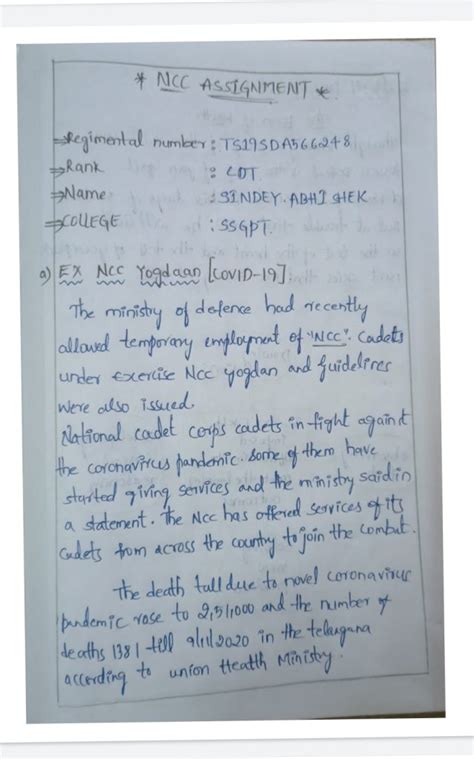 * NCC ASSIGNMENT *
⇒Regimental number : TS19SDA566248
⇒Rank : CDT
⇒Name : SINDEY. ABHISHEK
⇒COLLEGE : SSGPT.
a) EX NCC Yogdaan [COVID-19]:
The ministry of defence had recently
allowed temporary employment of "NCC". Cadets
under Exercise NCC yogdan and guidelines
were also issued.
National cadet corps cadets in-fight against
the coronavirus pandemic. some of them have
started giving services and the ministry said in
a statement. The NCC has offered services of its
cadets from across the country to join the combat.
The death tall due to novel coronavirus
pandemic rose to 2,51,000 and the number of
deaths 1381 till 9/11/2020 in the telagana
according to union Health Ministry.